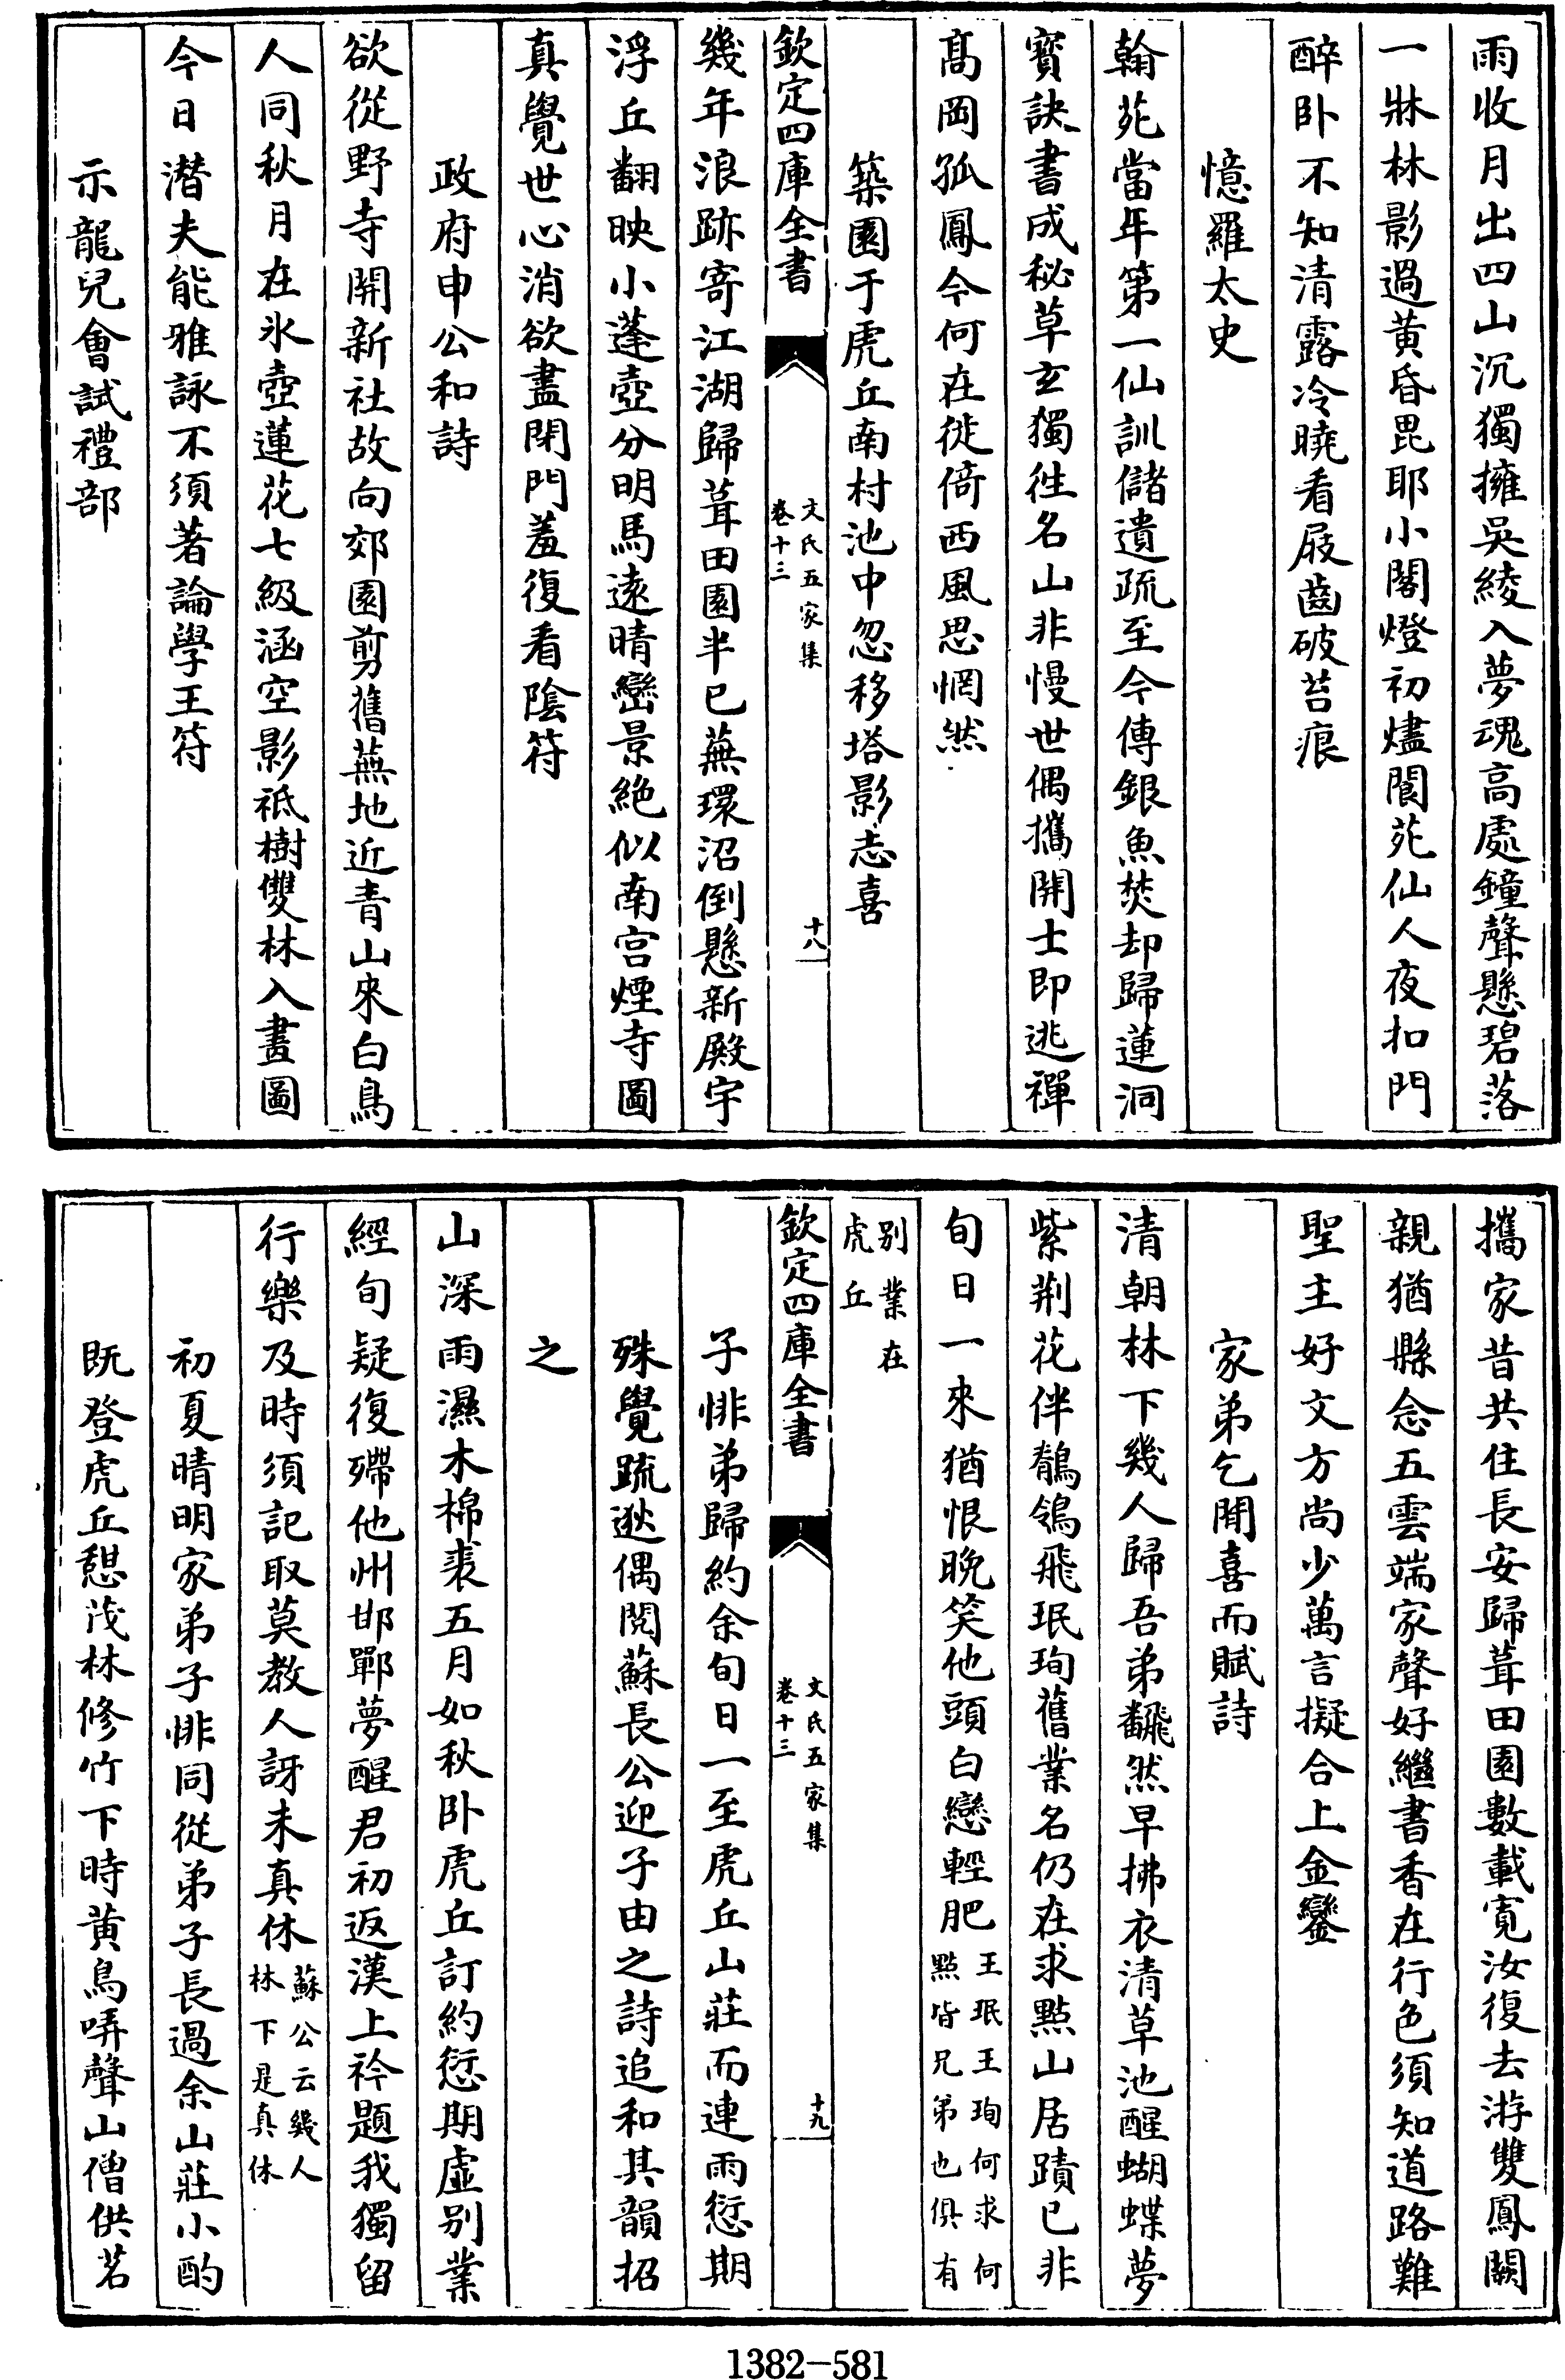 雨收月出四山沉獨擁吳綾入夢魂高處鐘聲懸碧落
一牀林影過黄昏毘耶小閣燈初燼閬苑仙人夜扣門
醉卧不知清露冷曉看屐齒破苔痕
憶羅太史
翰苑當年第一仙訓儲遺疏至今傳銀魚焚却歸蓮洞
寳訣書成秘草玄獨徃名山非慢世偶攜開士即逃禪
髙岡孤鳳今何在徙倚西風思惘然
築園于虎丘南村池中忽移塔影志喜
欽定四庫全書
文氏五家集
卷十三
十八
幾年浪跡寄江湖歸葺田園半已蕪環沼倒懸新殿宇
浮丘翻映小蓬壺分明馬遠晴巒景絶似南宫煙寺圖
真覺世心消欲盡閉門羞復看陰符
政府申公和詩
欲從野寺開新社故向郊園剪舊蕪地近青山來白鳥
人同秋月在氷壺蓮花七級涵空影祇樹雙林入畫圖
今日潛夫能雅詠不須著論學王符
示龍兒會試禮部
攜家昔共住長安歸葺田園數載寛汝復去游雙鳳闕
親猶縣念五雲端家聲好繼書香在行色須知道路難
聖主好文方尚少萬言擬合上金鑾
家弟乞閒喜而賦詩
清朝林下幾人歸吾弟飜然早拂衣清草池醒蝴蝶夢
紫荆花伴鶺鴒飛珉珣舊業名仍在求點山居蹟已非
旬日一來猶恨晩笑他頭白戀輕肥王珉王珣何求何
點皆兄弟也俱有
别業在
虎丘
欽定四庫全書
文氏五家集
卷十三
十九
子悱弟歸約余旬日一至虎丘山莊而連雨愆期
殊覺疏逖偶閲蘇長公迎子由之詩追和其韻招
之
山深雨濕木棉裘五月如秋卧虎丘訂約愆期虛别業
經旬疑復殢他州邯鄲夢醒君初返漢上衿題我獨留
行樂及時須記取莫教人訝未真休蘇公云幾人
林下是真休
初夏晴明家弟子悱同從弟子長過余山莊小酌
既登虎丘憇茂林修竹下時黄鳥哢聲山僧供茗
1382-581